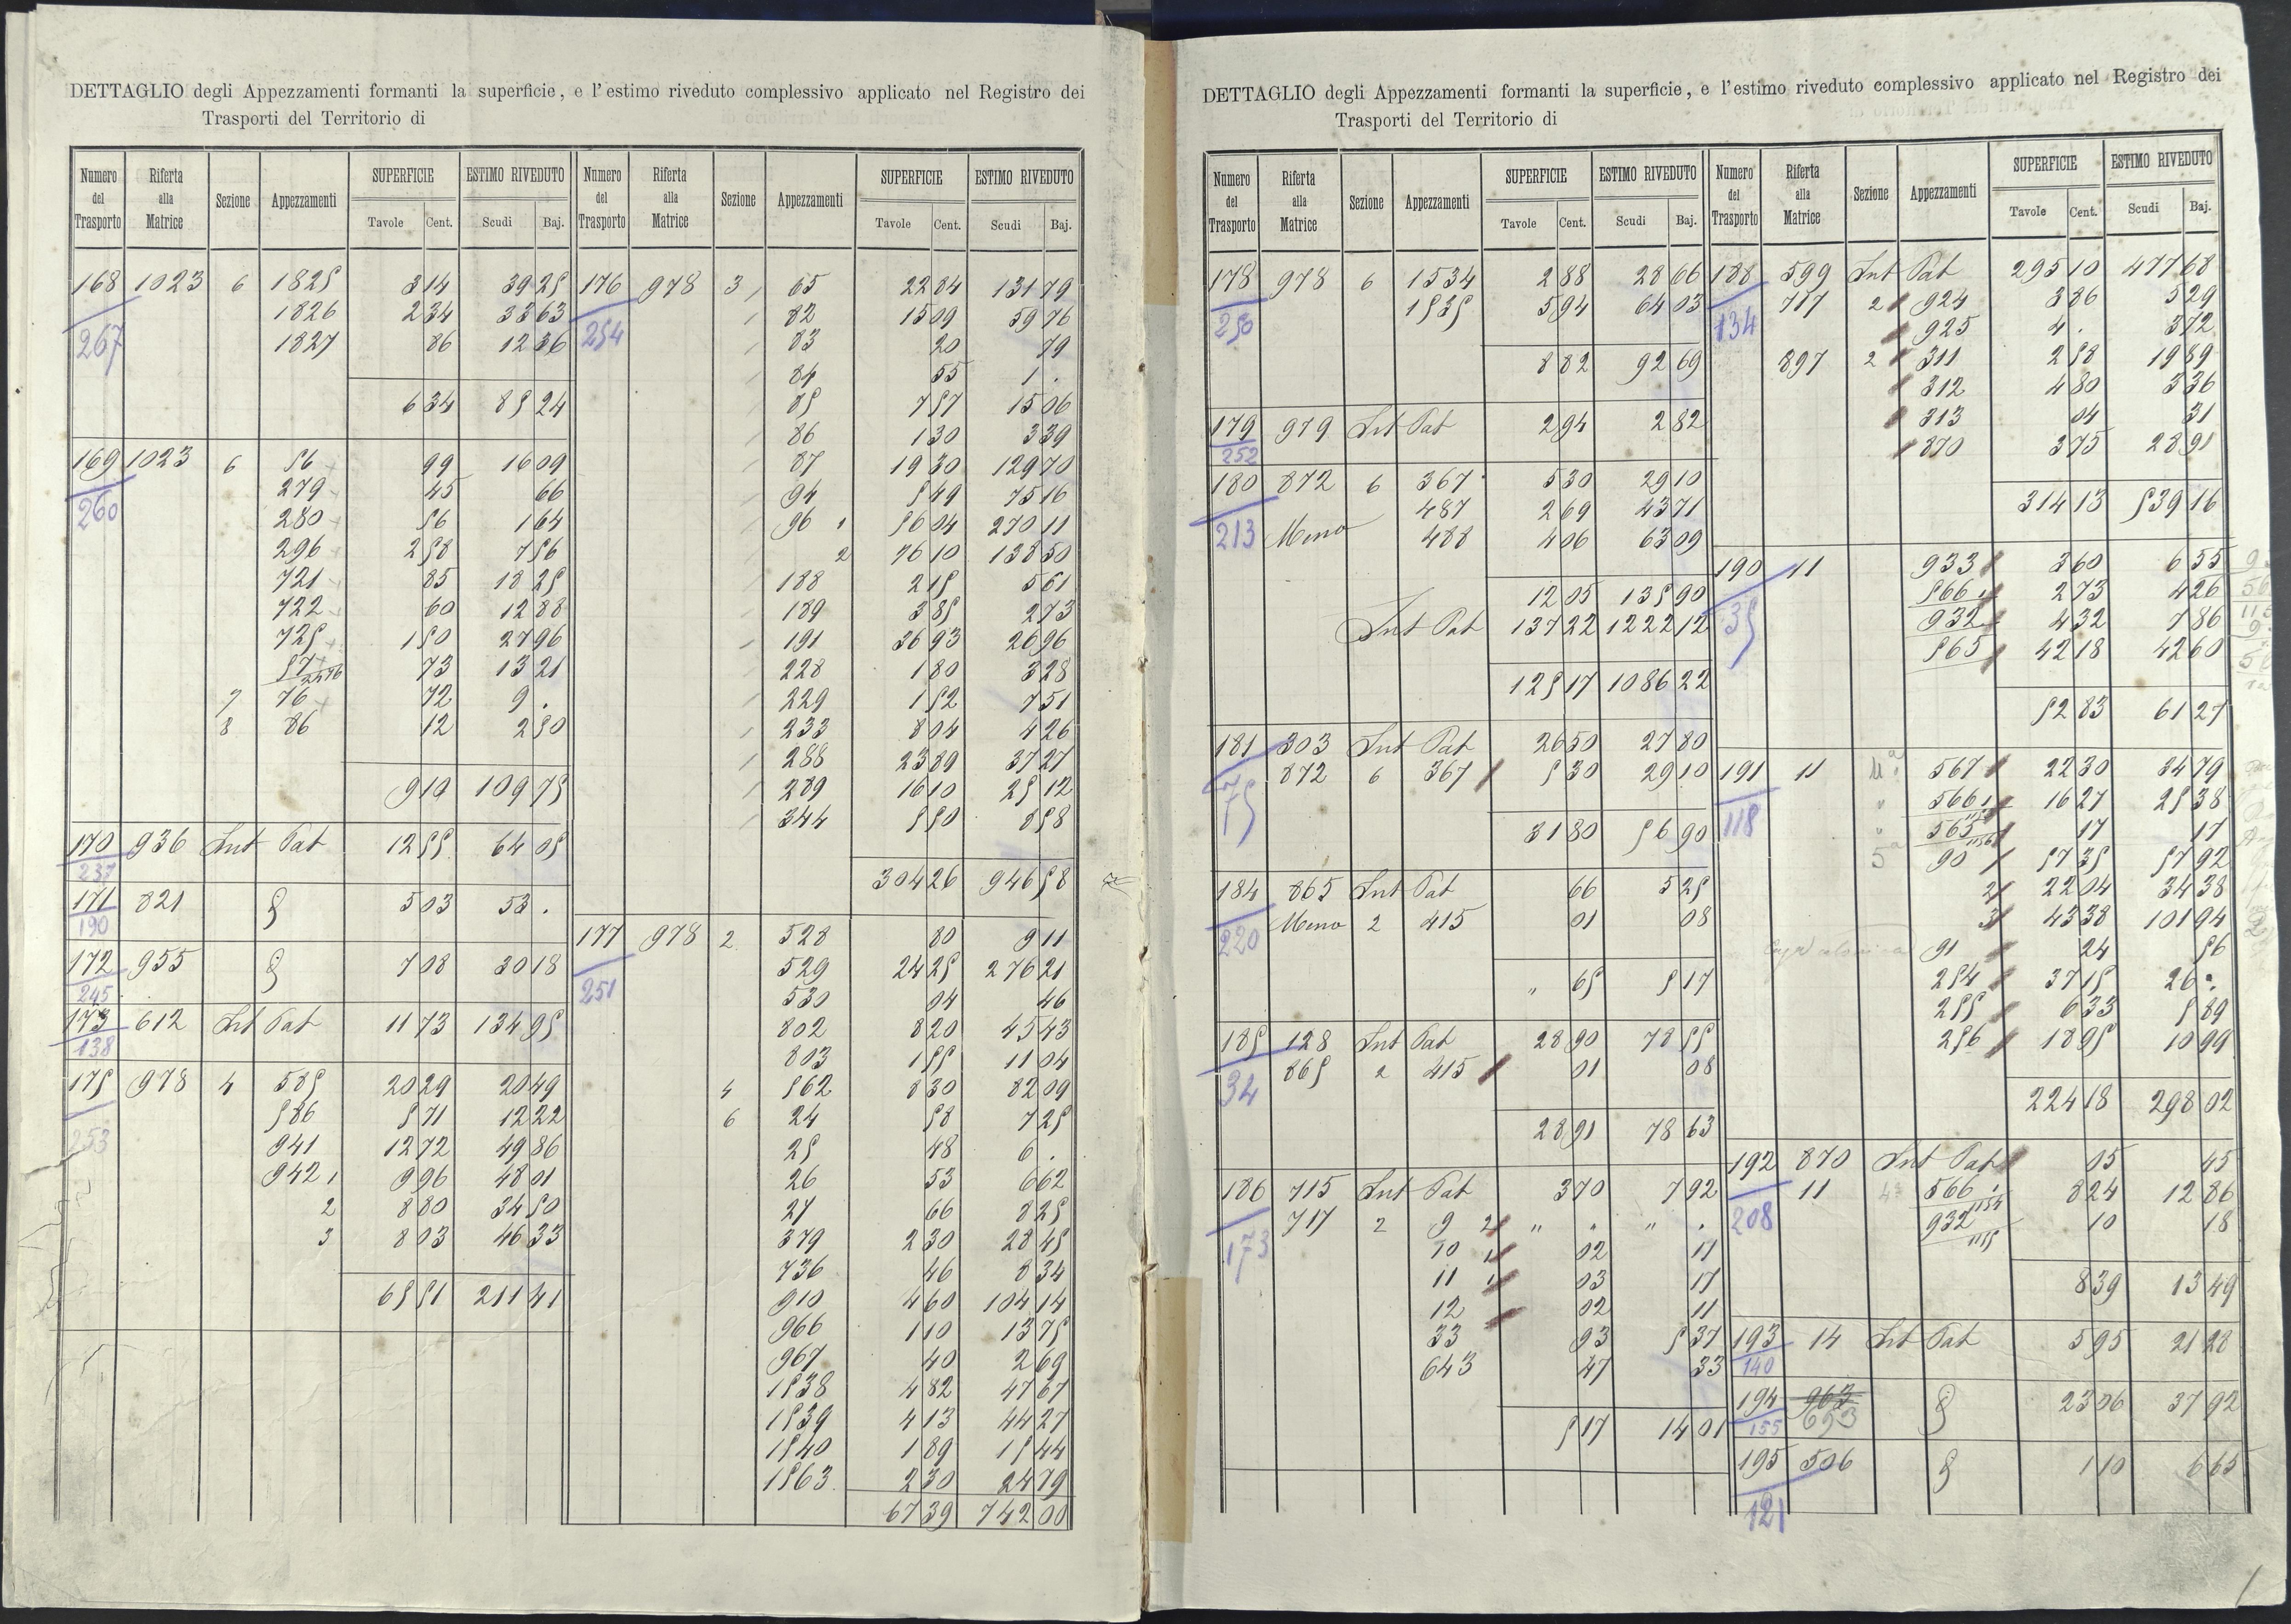 DETTAGLIO degli Appezzamenti formanti la superficie, e l'estimo riveduto complessivo applicato nel Registro dei
Trasporti del Territorio di
Numero del Trasporto Riferta alla Matrice Sezione Appezzamenti SUPERFICIE Tavole Cent. ESTIMO RIVEDUTO Scudi Baj.
168 1023 6 1825 3 14 39 25
267 1826 2 34 33 63
1827 86 12 36
6 34 85 24
169 1023 6 56 99 16 09
260 279 45 66
280 56 1 64
296 2 58 7 56
721 85 18 25
722 60 12 88
725 1 50 27 96
57 73 13 21
7 76 72 9 .
8 86 12 2 50
9 10 109 75
170 936 Int Pat 12 55 64 05
237
171 821 § 5 03 53 .
190
172 955 § 7 08 30 18
245
173 612 Int Pat 11 73 134 95
138
175 978 4 585 20 29 20 49
253 586 5 71 12 22
941 12 72 49 86
942 1 9 96 48 01
2 8 80 34 50
3 8 03 46 33
65 51 211 41
Numero del Trasporto Riferta alla Matrice Sezione Appezzamenti SUPERFICIE Tavole Cent. ESTIMO RIVEDUTO Scudi Baj.
176 978 3 65 22 84 131 79
254 82 15 09 59 76
83 20 79
84 55 1 .
85 7 57 15 06
86 1 30 3 39
87 19 30 129 70
94 5 49 75 16
96 1 56 04 270 11
2 76 10 138 50
188 2 15 5 61
189 3 85 2 73
191 36 93 26 96
228 1 80 3 28
229 1 52 7 51
233 8 04 4 26
288 23 89 37 27
289 16 10 25 12
344 5 50 8 58
304 26 946 58
177 978 2 528 80 9 11
251 529 24 25 276 21
530 04 46
802 8 20 45 43
803 1 55 11 04
4 562 8 30 82 09
6 24 58 7 25
25 48 6 .
26 53 6 62
27 66 8 25
379 2 30 28 45
736 46 8 34
910 4 60 104 14
966 1 10 13 75
967 40 2 69
1538 4 82 47 67
1539 4 13 44 27
1540 1 89 15 44
1563 2 30 24 79
67 39 742 00
DETTAGLIO degli Appezzamenti formanti la superficie, e l'estimo riveduto complessivo applicato nel Registro dei
Trasporti del Territorio di
Numero del Trasporto Riferta alla Matrice Sezione Appezzamenti SUPERFICIE Tavole Cent. ESTIMO RIVEDUTO Scudi Baj.
178 978 6 1534 2 88 28 66
250 1535 5 94 64 03
8 82 92 69
179 979 Int Pat 2 94 2 82
252
180 872 6 367 5 30 29 10
213 Meno 487 2 69 43 71
488 4 06 63 09
12 05 135 90
Int Pat 137 22 1222 12
125 17 1086 22
181 303 Int Pat 26 50 27 80
75 872 6 367 5 30 29 10
31 80 56 90
184 865 Int Pat 66 5 25
220 Meno 2 415 01 08
" 65 5 17
185 128 Int Pat 28 90 78 55
34 865 2 415 01 08
28 91 78 63
186 715 Int Pat 3 70 7 92
173 717 2 9 2 " . " .
10 1 02 11
11 1 03 17
12 02 11
33 93 5 37
643 47 33
5 17 14 01
Numero del Trasporto Riferta alla Matrice Sezione Appezzamenti SUPERFICIE Tavole Cent. ESTIMO RIVEDUTO Scudi Baj.
188 599 Int Pat 295 10 477 68
134 717 2 924 3 86 5 29
925 4 . 3 72
897 2 311 2 58 19 89
312 4 80 3 36
313 04 31
370 3 75 28 91
314 13 539 16
190 11 933 3 60 6 55
35 566 1 2 73 4 26
932 4 32 7 86
565 42 18 42 60
52 83 61 27
191 11 4ª 567 22 30 34 79
118 " 566 1 16 27 25 38
" 565 17 17
5ª 90 1 57 35 57 92
2 22 04 34 38
3 43 38 101 94
91 24 56
254 37 15 26 .
255 6 33 5 89
256 18 95 10 99
224 18 298 02
192 870 Int Pat 05 45
208 11 4ª 566 1 1154 8 24 12 86
932 1155 10 18
8 39 13 49
193 14 Int Pat 5 95 21 28
140
194 963 § 23 06 37 92
155 693
195 506 § 1 10 6 65
121